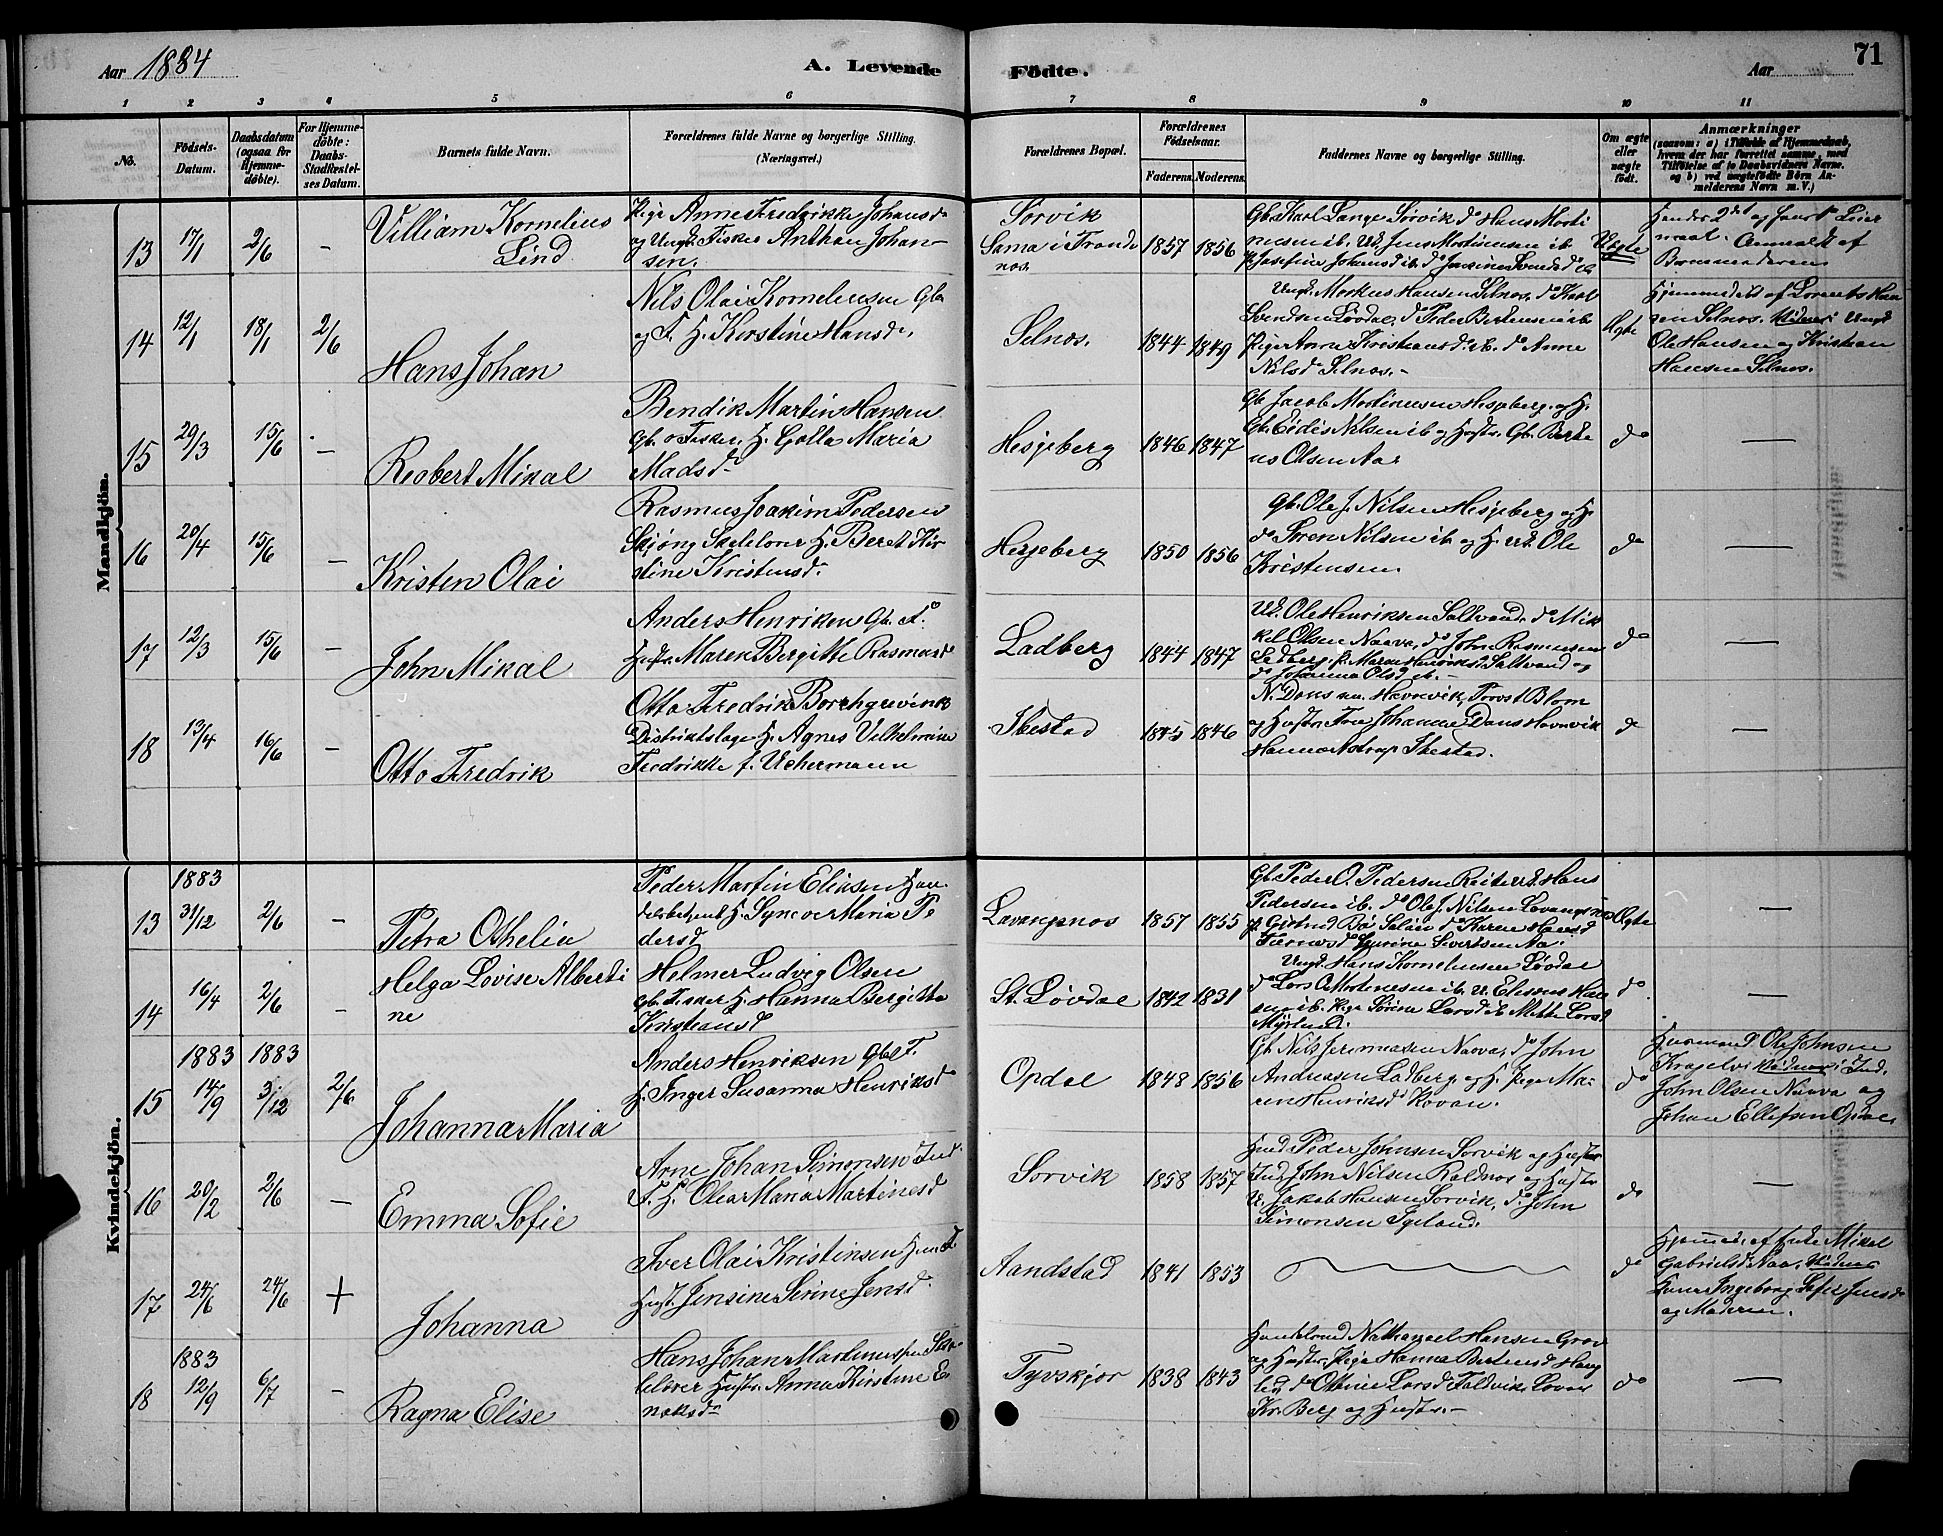 Aar 1884
A. Levende
Födte.
Aar
71
1 2 3 4 5 6 7 8 9 10 11
No.
Födsels-
Datum.
Daabsdatum
(ogsaa for
Hjemme-
döbte).
For Hjemme-
döbte:
Daabs-
Stadfæstel-
ses Datum.
Barnets fulde Navn.
Forældrenes fulde Navne og borgerlige Stilling.
(Næringsvei.)
Forældrenes Bopæl.
Forældrenes
Födselsaar.
Faderens.
Moderens.
Faddernes Navne og borgerlige Stilling.
Om ægte
eller
uægte
födt.
Anmærkninger
(saasom: a) i Tilfælde af Hjemmedaab,
hvem der har forrettet samme, med
Tilföielse af to Daabsvidners Navne.
og b) ved uægtefödte Börn An-
melderens Navn m. V.)
Mandkjön.
13 17/1 2/6 -
Villiam Kornelius
Lind
Pige Anne Fredrikke Johansd
og Ungk. Fisker Anthon Johan-
sen.
Sorvik
Sama i Tronde
nos.
1857 1856
Gb. Karl Lange Sorvik do Hans Morti
nusen ib. Uk. Jens Mortinusen ib
p. Josefine Johansd ib. do
Uægte
og
maal. Anmeldt af
14 12/1 18/1 2/6
Hans Johan
Nils Olai Kornelinsen Gb
og F. H. Kirstine Hansd.
Selnos.
1844 1849
Ungk. Morkus Hansen Selnos, do Karl
Svendsen Løvdal, do Peder Berteusen ib
Pige Anne Kristiansd. ib. do Anne
Nilsd Selnos.-
Ægte
Hjemmedøbt af Lorents Han
sen Selnos. Vidner: Ungk
Ole Hansen og Kristian
Hansen Selnos.
15 29/3 15/6 -
Reobert Mikal
Bendik Martin Hansen
Gb. o Fisker. H. Golla Maria
Madsd
Hesjeberg
1846 1847
Gb. Jacob Mortinusen Hesjeberg. og H.
Gb. Eidis Nilsen ib og Hustr. Gb. Berte
us Olsen Aa
do
16 20/4 15/6 -
Kristen Olai
Rasmus Joakim Pedersen
Skjøng H. Beret Kir
stine Kristensd.
Hesjeberg
1850 1856
Gb. Ole J. Nilsen Hesjeberg og H.
do Søren Nilsen ib. og H. Uk. Ole
Kristensen.
do
17 12/3 15/6 -
John Mikal
Anders Henriksen Gb. F.
Hustr. Maren Bergitte Rasmusd
Ladberg
1844 1847
Uk. Ole Henriksen Saltvand, do Mik
kel Olsen Naava, do John Rasmussen
Ladberg p. Maren Henriksd. Saltvand og
do Johanna Olsd ib.-
do
18 13/4 16/6 -
Otto Fredrik
Otto Fredrik Borchgrevink
Distriktslæge H. Agnes Vilhelmine
Fredrikke f. Uchermann
Ibestad
1845 1846
N. Dons Havnvik, Blom
og Hustr. Frue Johanne Dons Havnvik
Hanna Astrup Ibestad.
do
Kvindekjön.
13 1883 31/12 2/6 -
Petra Othelia
Peder Martin Eliasen Han
delsbetjent H. Synove Maria Pe
dersd
Lavangsnos
1857 1855
Gb. Peder O. Pedersen Reite Uk. Hans
Pedersen ib. do Ole J. Nilsen Lavangsnos
p. Gjertrud Bø Salan do Karen Hansd
do Serine Sivertsen Aa.
Ægte
14 16/4 2/6 -
Helga Lovise Alberti
ne
Helmer Ludvig Olsen
Gb. Fisker H. Hanna Bergitte
Kristiansd
St. Løvdal
1842 1831
Ungk. Hans Kornelinsen Løvdal
do Lars A Mortinusen ib. U. Eliseus Han
sen ib. Pige Sørine Larsd ib Mette Larsd
Myrlund.
do
15 1883 14/9 1883 3/12 2/6
Johanna Maria
Anders Henriksen Gb F.
H. Inger Susanna Henriksd
Opdal
1848 1856
Gb. Nils Jeremiasen Naava, do John
Andreasen Ladberg og H. Pige Ma-
ren Henriksd Rovan.
do
Husmand Ole Johnsen
Vidner: Ind.
John Olsen Naava og
Johan Ellifsen Opdal
16 20/2 2/6 -
Emma Sofie
Arne Johan Simonsen Ind.
F. H. Olea Maria Martinesd
Sorvik
1858 1857
Husd Peder Johnsen Sorvik og Hustr
Ind. John Nilsen Roldnos og Hustr
U. Jakob Hansen Sorvik, do John
Simonsen Igeland.
do
17 24/6 24/6 +
Johanna
Iver Olai Kristinsen Husm F.
Hust. Jensine Serine Jensd.
Aandstad
1841 1853
do
Hjemmed. af Enke Mikal
Gabrielsd Naa. Vidner
Ingeborg Sofie Jensd
og Moderen.
18 1883 12/9 6/7 -
Ragna Elise
Hans Johan Martinussen Sko
lelærer Hustr. Anna Kirstine E
noksd
Tyvskjor
1838 1843
Nathanael Hansen Grov
og Hustr. Pige Hanna Berteusd Haug
li do Ottinie Larsd Foldvik
Kr. Berg og Hustr.-
do